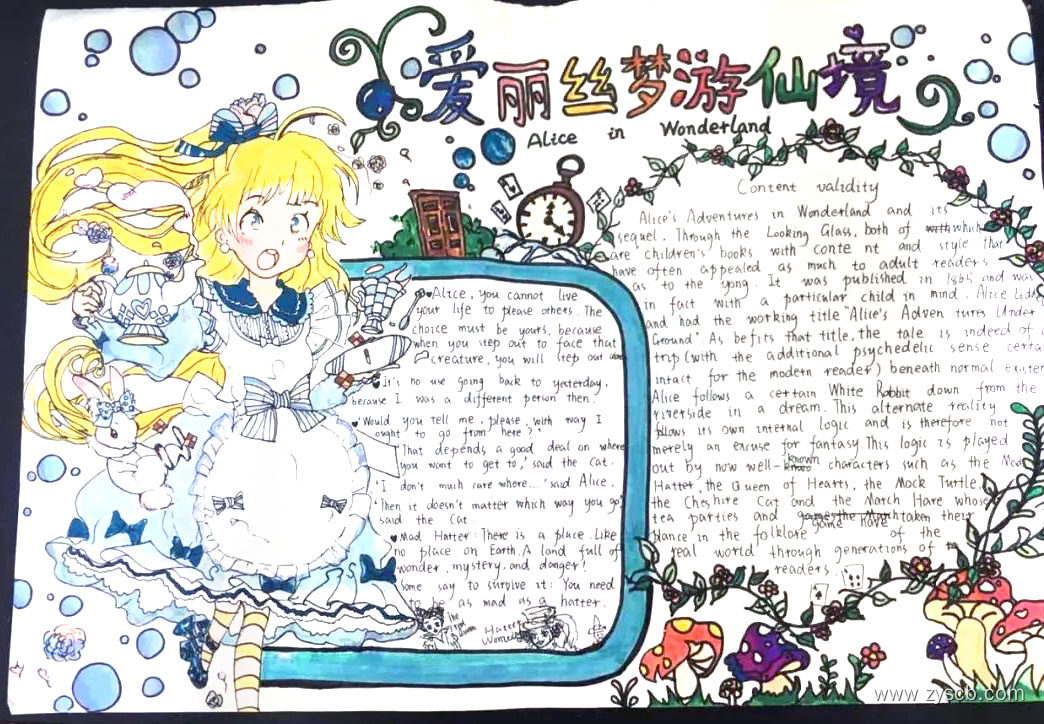 爱丽丝梦游仙境
Alice in Wonderland
Alice, you cannot live
your life to please others. The
choice must be yours, because
when you step out to face that
creature, you will step out
It's no use going back to yesterday,
because I was a different person then.
'Would you tell me, please, with way I
ought to go from here?'
'That depends a good deal on where
you want to get to,' said the Cat.
'I don't much care where...' said Alice.
'Then it doesn't matter which way you go,'
said the Cat.
Mad Hatter: There is a place. Like
no place on Earth. A land full of
wonder, mystery, and danger!
Some say to survive it: You need
to be as mad as a hatter.
Content validity
Alice's Adventures in Wonderland and its
sequel, Through the Looking Glass, both of which
are children's books with conte nt and style that
have often appealed as much to adult readers
as to the yong. It was published in 1865 and was
in fact with a particular child in mind. Alice
and had the working title "Alice's Adven tures Under
Ground". As be fits that title, the tale is indeed of a
trip (with the additional psychedelic sense
intact for the modern reader) beneath normal
Alice follows a certain White Rabbit down from the
riverside in a dream. This alternate reality
follows its own internal logic and is therefore not
merely an excuse for fantasy. This logic is played
out by now well-known characters such as the Mad
Hatter, the Queen of Hearts, the Mock Turtle,
the Cheshire Cat and the March Hare whose
tea parties and game have taken their
place in the folklore of the
real world through generations of
readers.
www.zyscb.com